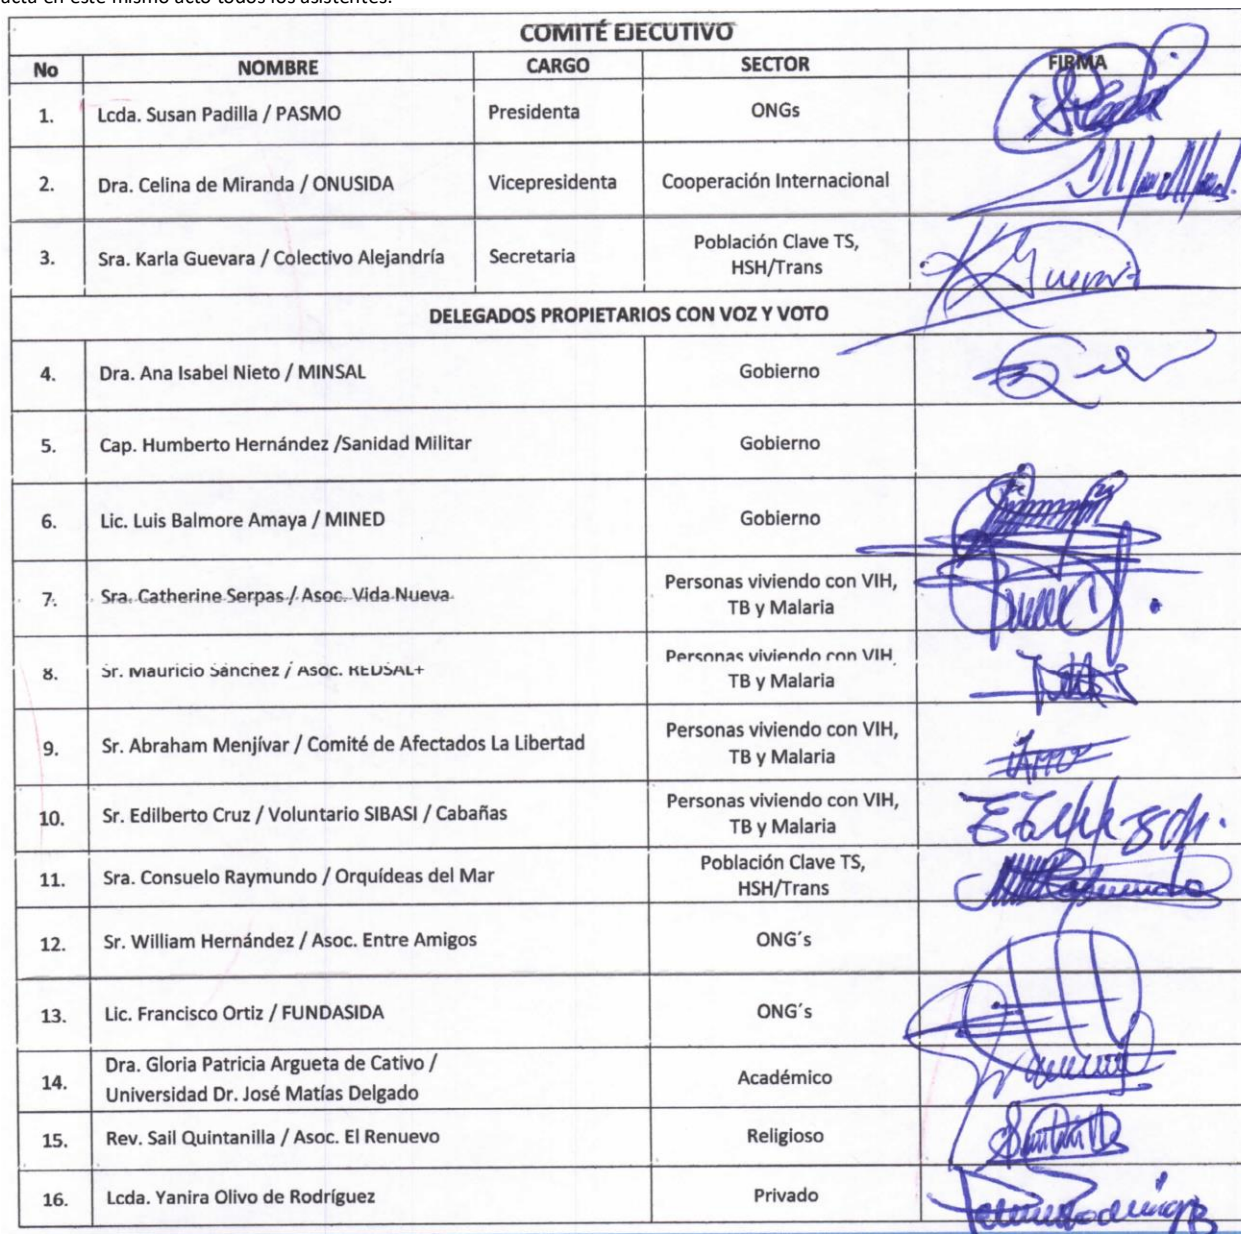 acta en este mismo acto todos los asistentes.
COMITÉ EJECUTIVO
No NOMBRE CARGO SECTOR FIRMA
1. Lcda. Susan Padilla / PASMO Presidenta ONGs
2. Dra. Celina de Miranda / ONUSIDA Vicepresidenta Cooperación Internacional
3. Sra. Karla Guevara / Colectivo Alejandría Secretaria Población Clave TS,
HSH/Trans
DELEGADOS PROPIETARIOS CON VOZ Y VOTO
4. Dra. Ana Isabel Nieto / MINSAL Gobierno
5. Cap. Humberto Hernández /Sanidad Militar Gobierno
6. Lic. Luis Balmore Amaya / MINED Gobierno
7. Sra. Catherine Serpas / Asoc. Vida Nueva Personas viviendo con VIH,
TB y Malaria
8. Sr. Mauricio Sánchez / Asoc. REDSAL+ Personas viviendo con VIH
TB y Malaria
9. Sr. Abraham Menjívar / Comité de Afectados La Libertad Personas viviendo con VIH,
TB y Malaria
10. Sr. Edilberto Cruz / Voluntario SIBASI / Cabañas Personas viviendo con VIH,
TB y Malaria
11. Sra. Consuelo Raymundo / Orquídeas del Mar Población Clave TS,
HSH/Trans
12. Sr. William Hernández / Asoc. Entre Amigos ONG´s
13. Lic. Francisco Ortiz / FUNDASIDA ONG´s
14. Dra. Gloria Patricia Argueta de Cativo / Académico
Universidad Dr. José Matías Delgado
15. Rev. Sail Quintanilla / Asoc. El Renuevo Religioso
16. Lcda. Yanira Olivo de Rodríguez Privado